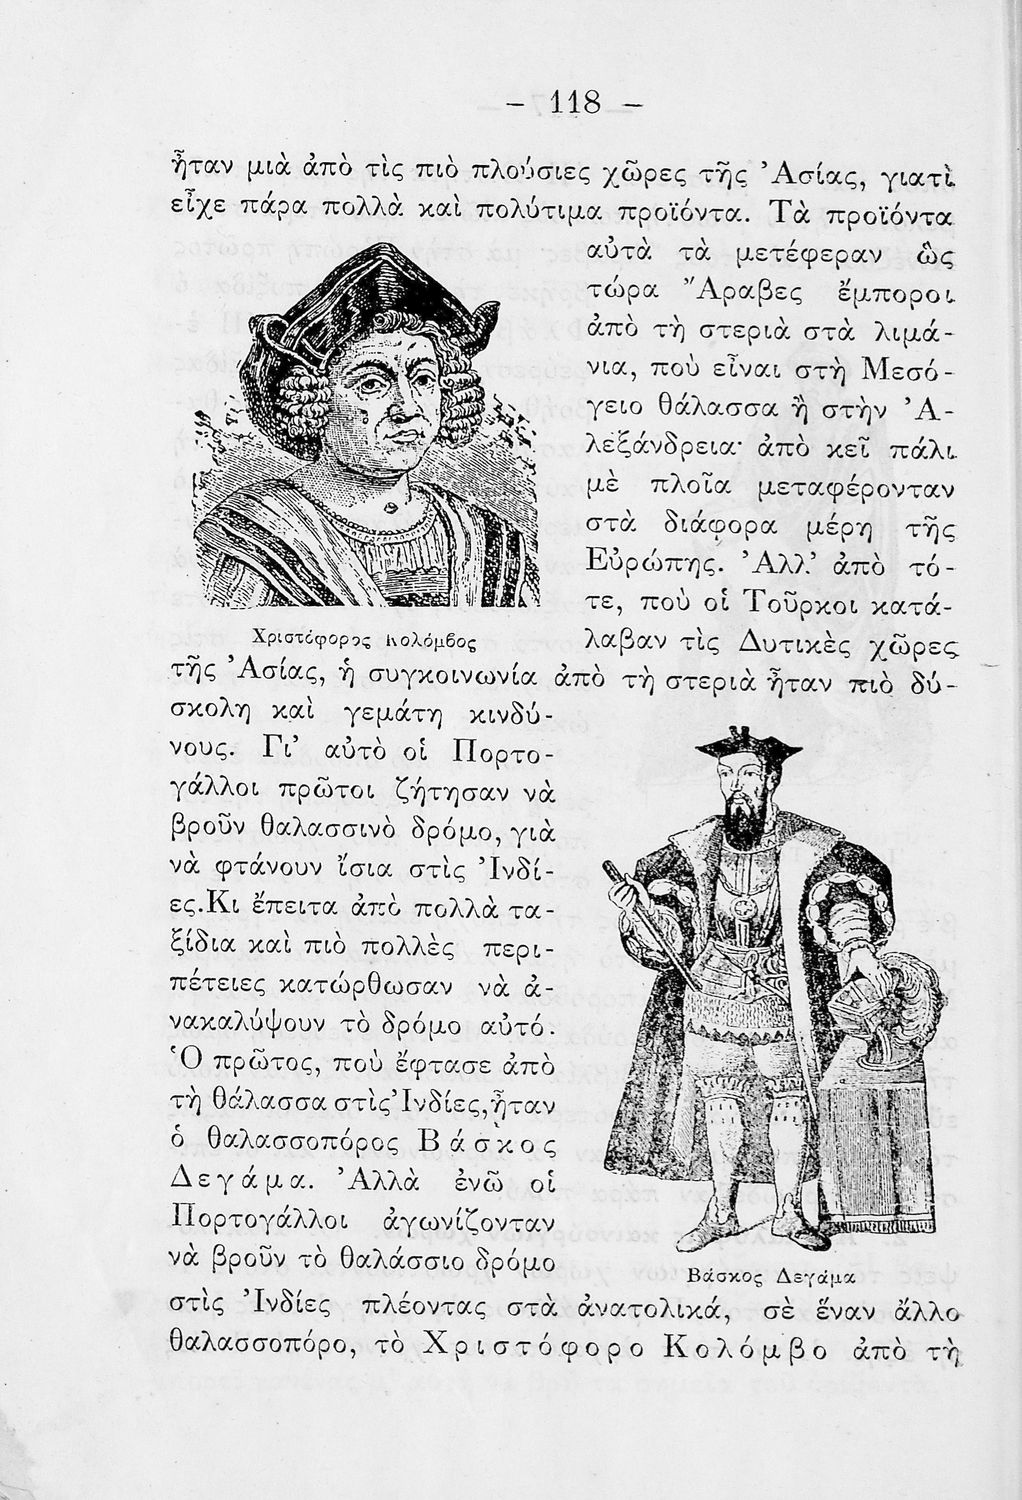 – 118 –
ἦταν μιὰ ἀπὸ τὶς πιὸ πλούσιες χῶρες τῆς Ἀσίας, γιατὶ
εἶχε πάρα πολλὰ καὶ πολύτιμα προϊόντα. Τὰ προϊόντα
αὐτὰ τὰ μετέφεραν ὣς
τώρα Ἄραβες ἔμποροι
ἀπὸ τὴ στεριὰ στὰ λιμά-
νια, ποὺ εἶναι στὴ Μεσό-
γειο θάλασσα ἢ στὴν Ἀ-
λεξάνδρεια· ἀπὸ κεῖ πάλι
μὲ πλοῖα μεταφέρονταν
στὰ διάφορα μέρη τῆς
Εὐρώπης. Ἀλλ' ἀπὸ τό-
τε, ποὺ οἱ Τοῦρκοι κατά-
Χριστόφορος Κολόμβος
λαβαν τὶς Δυτικὲς χῶρες
τῆς Ἀσίας, ἡ συγκοινωνία ἀπὸ τὴ στεριὰ ἦταν πιὸ δύ-
σκολη καὶ γεμάτη κινδύ-
νους. Γι' αὐτὸ οἱ Πορτο-
γάλλοι πρῶτοι ζήτησαν νὰ
βροῦν θαλασσινὸ δρόμο, γιὰ
νὰ φτάνουν ἴσια στὶς Ἰνδί-
ες. Κι ἔπειτα ἀπὸ πολλὰ τα-
ξίδια καὶ πιὸ πολλὲς περι-
πέτειες κατώρθωσαν νὰ ἀ-
νακαλύψουν τὸ δρόμο αὐτό.
Ὁ πρῶτος, ποὺ ἔφτασε ἀπὸ
τὴ θάλασσα στὶς Ἰνδίες, ἦταν
ὁ θαλασσοπόρος Βάσκος
Δεγάμα. Ἀλλὰ ἐνῶ οἱ
Πορτογάλλοι ἀγωνίζονταν
νὰ βροῦν τὸ θαλάσσιο δρόμο
Βάσκος Δεγάμα
στὶς Ἰνδίες πλέοντας στὰ ἀνατολικά, σὲ ἕναν ἄλλο
θαλασσοπόρο, τὸ Χριστόφορο Κολόμβο ἀπὸ τὴ